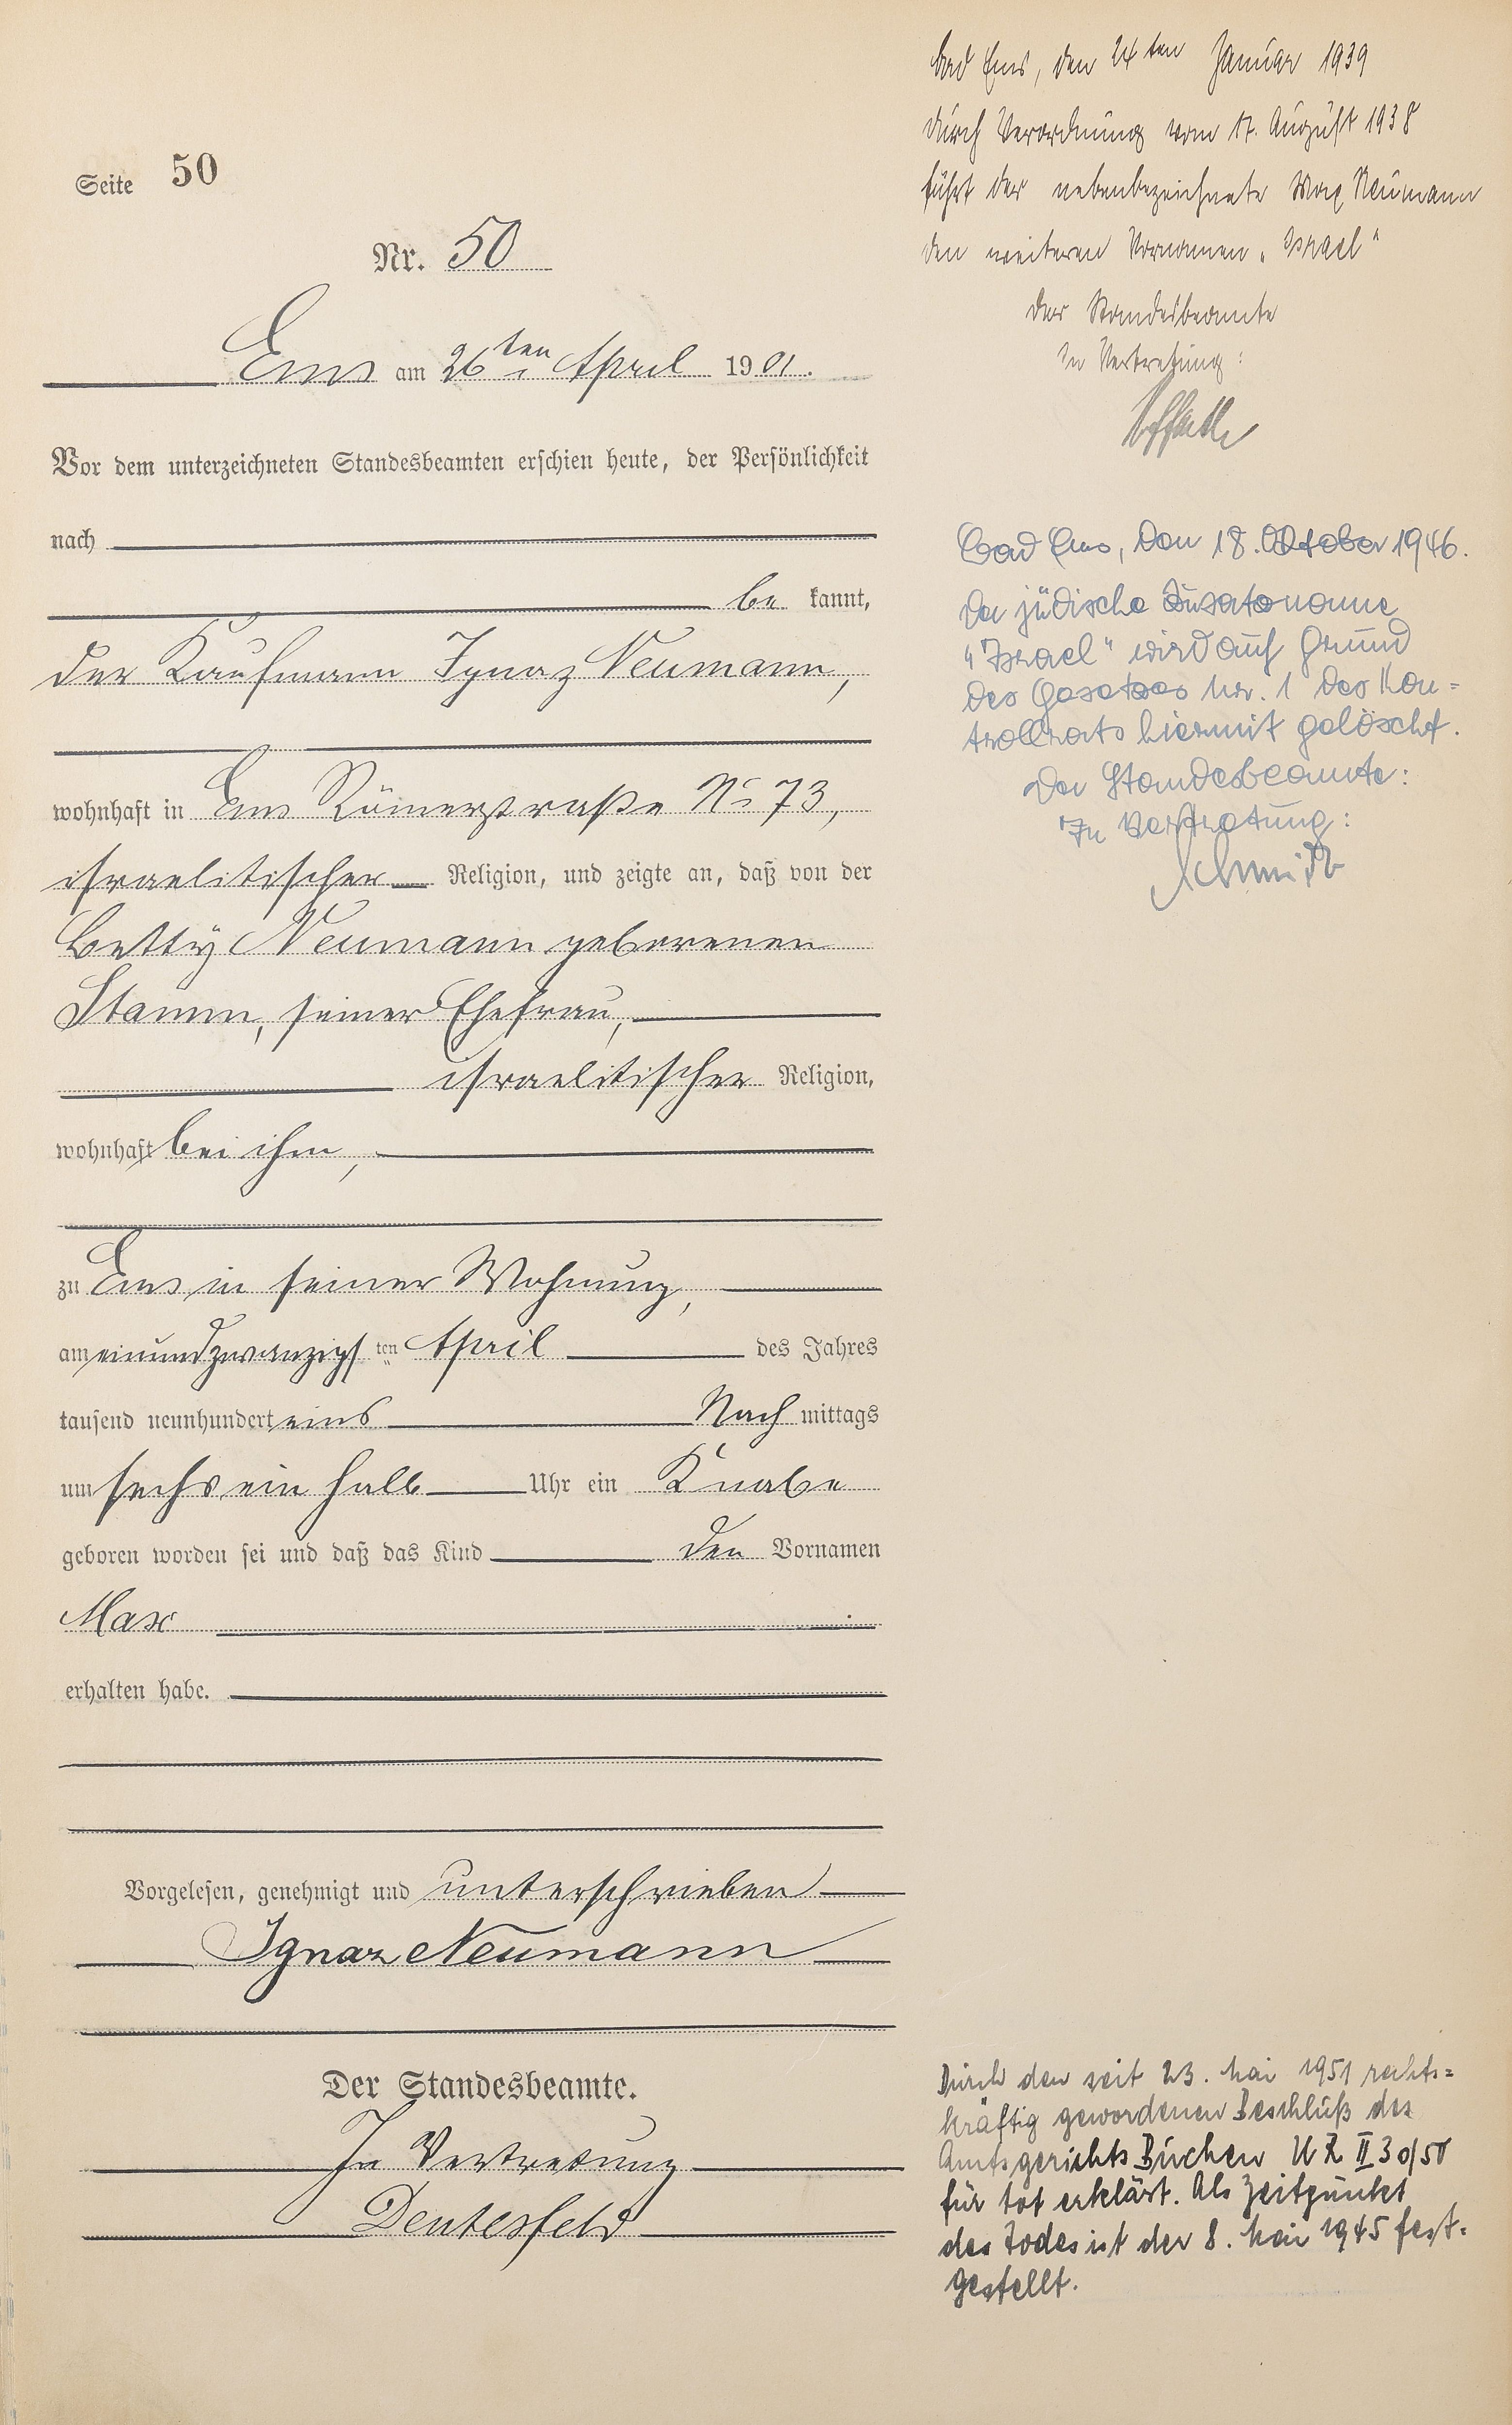 Seite 50
Nr. 50
Ems am 26ten April 1901.
Vor dem unterzeichneten Standesbeamten erschien heute, der Persönlichkeit
nach
be kannt,
der Kaufmann Ignaz Neumann,
wohnhaft in Ems Römerstraße No 73,
israelitischer Religion, und zeigte an, daß von der
Betty Neumann geborenen
Stamm, seiner Ehefrau,
israelitischer Religion,
wohnhaft bei ihm,
zu Ems in seiner Wohnung,
am einundzwanzigsten April des Jahres
tausend neunhundert eins Nach mittags
um sechs ein halb Uhr ein Knabe
geboren worden sei und daß das Kind den Vornamen
Max
erhalten habe.
Vorgelesen, genehmigt und unterschrieben
Ignaz Neumann
Der Standesbeamte.
In Vertretung
Deutesfeld
Bad Ems, den 24ten Januar 1939
Durch Verordnung vom 17. August 1938
führt der nebenbezeichnete Max Neumann
den weiteren Vornamen „Israel“
Der Standesbeamte
In Vertretung:
Bad Ems, den 18. Oktober 1946.
Der jüdische Zusatzname
"Israel" wird auf Grund
des Gesetzes Nr. 1 des Kon=
trollrats hiermit gelöscht.
Der Standesbeamte:
In Vertretung:
Schmidt
Durch den seit 23. Mai 1951 rechts=
kräftig gewordenen Beschluß des
Amtsgerichts Büchen UR II 30/50
für tot erklärt. Als Zeitpunkt
des Todes ist der 8. Mai 1945 fest=
gestellt.